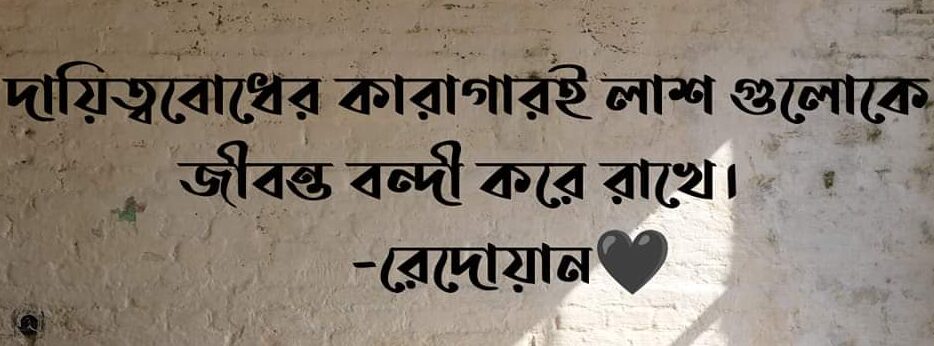 দায়িত্ববোধের কারাগারই লাশ গুলোকে
জীবন্ত বন্দী করে রাখে।
-রেদোয়ান🖤